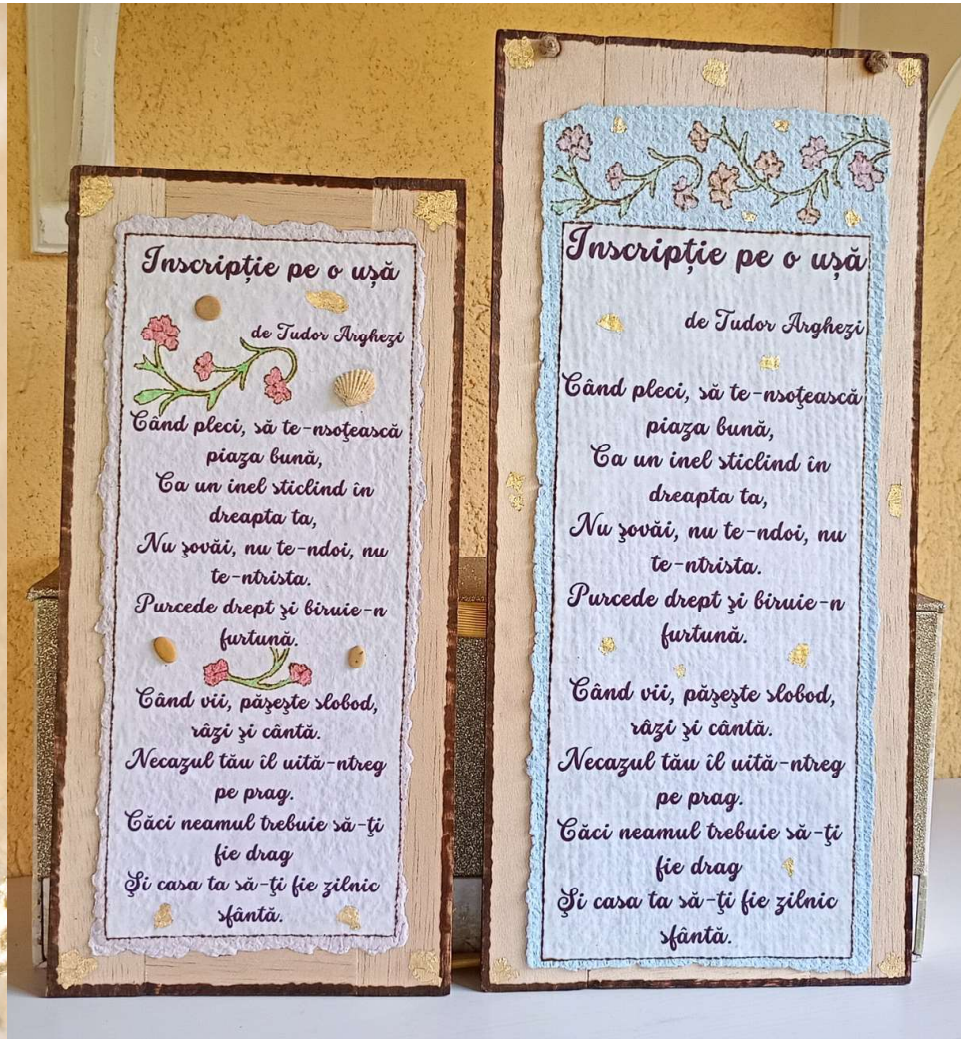 Inscripție pe o ușă
de Tudor Arghezi
Când pleci, să te-nsoţească
piaza bună,
Ca un inel sticlind în
dreapta ta,
Nu şovăi, nu te-ndoi, nu
te-ntrista.
Purcede drept şi biruie-n
furtună.
Când vii, păşeşte slobod,
râzi şi cântă.
Necazul tău îl uită-ntreg
pe prag.
Căci neamul trebuie să-ţi
fie drag
Şi casa ta să-ţi fie zilnic
sfântă.
Inscripție pe o ușă
de Tudor Arghezi
Când pleci, să te-nsoţească
piaza bună,
Ca un inel sticlind în
dreapta ta,
Nu şovăi, nu te-ndoi, nu
te-ntrista.
Purcede drept şi biruie-n
furtună.
Când vii, păşeşte slobod,
râzi şi cântă.
Necazul tău îl uită-ntreg
pe prag.
Căci neamul trebuie să-ţi
fie drag
Şi casa ta să-ţi fie zilnic
sfântă.